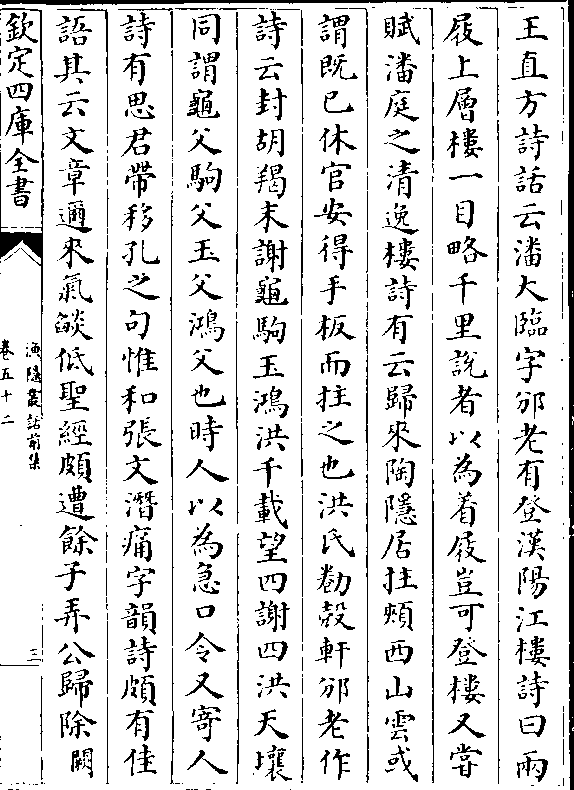 王直方詩話云潘大臨字邠老有登漢陽江樓詩曰兩
屐上層樓一目略千里說者以為着屐豈可登樓又嘗
賦潘庭之清逸樓詩有云歸來陶隱居拄頰西山雲或
謂既已休官安得手板而拄之也洪氏勸殼軒邠老作
詩云封胡羯末謝龜駒玉鴻洪千載望四謝四洪天壤
同謂龜父駒父玉父鴻父也時人以為急口令又寄人
詩有思君帶移孔之句惟和張文潛痛字韻詩頗有佳
語其云文章邇來氣燄低聖經頗遭餘子弄公歸除闕
欽定四庫全書
漁隱叢話前集
卷五十二
三